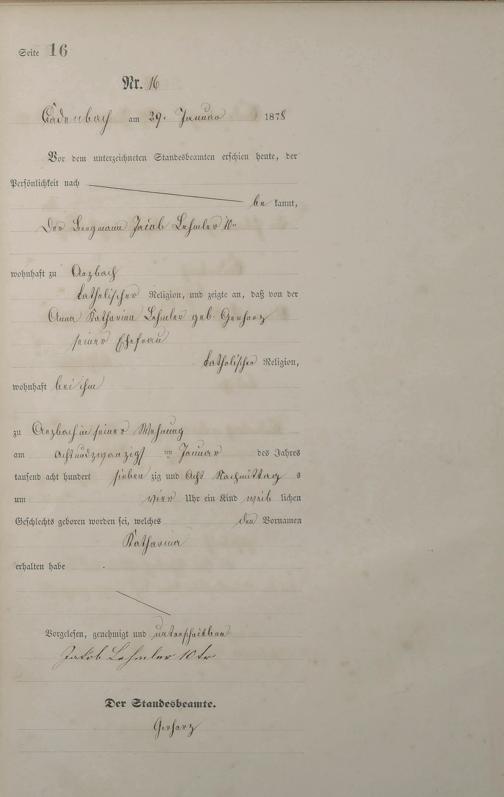 Seite 16
Nr. 16
Cadenbach am 29. Januar 1878
Vor dem unterzeichneten Standesbeamten erschien heute, der
Persönlichkeit nach
be kannt,
Der Bergmann Jacob Lehmler 10ter
wohnhaft zu Arzbach
katholischer Religion, und zeigte an, daß von der
Anna Katharina Lehmler geb. Gerharz
seiner Ehefrau
katholischer Religion,
wohnhaft bei ihm
zu Arzbach in seiner Wohnung
am achtundzwanzigsten Januar des Jahres
tausend acht hundert sieben zig und acht Nachmittag s
um vier Uhr ein Kind weib lichen
Geschlechts geboren worden sei, welches den Vornamen
Katharina
erhalten habe
Vorgelesen, genehmigt und unterschrieben
Jakob Lehmler 10ter
Der Standesbeamte.
Gerharz